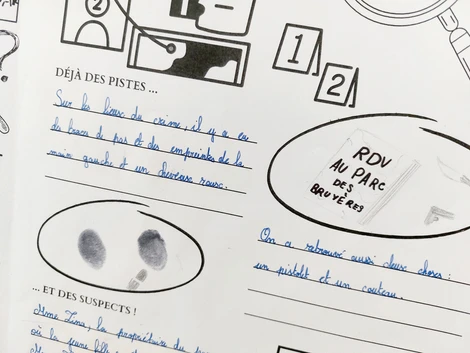 2
1
2
DÉJÀ DES PISTES ...
Sur les lieux du crime, il y a eu
de traces de pas et des empreintes de la
main gauche et un cheveux roux.
RDV
AU PARC
DES
BRUYÈRES
On a retrouvé aussi deux choses :
un pistolet et un couteau.
... ET DES SUSPECTS !
Mme Zina, la propriétaire du
où la jeune fille